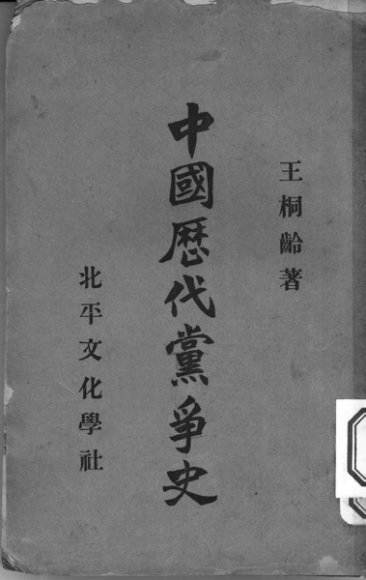 王桐齡著
中國歷代黨爭史
北平文化學社